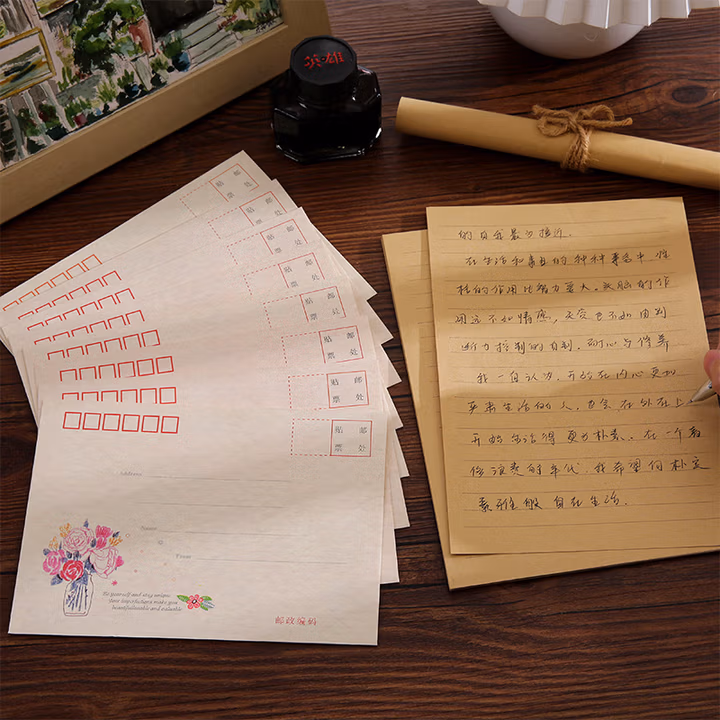 英·雄
贴 邮
票 处
贴 邮
票 处
贴 邮
票 处
贴 邮
票 处
贴 邮
票 处
贴 邮
票 处
贴 邮
票 处
贴 邮
票 处
Address
Name
From
Be yourself and stay unique
Your imperfections make you
beautiful,lovable and valuable
邮政编码
的自我最为接近.
在生活和事业的种种事务中,性
格的作用比智力重大。头脑的作
用远不如情感,天资也不如由判
断力控制的自制、耐心与修养
我一向认为,开始在内心更加
严肃生活的人,也会在外在上
开始生活得更为朴素。在一个奢
侈浪费的年代,我希望向朴实
素雅般自在生活.